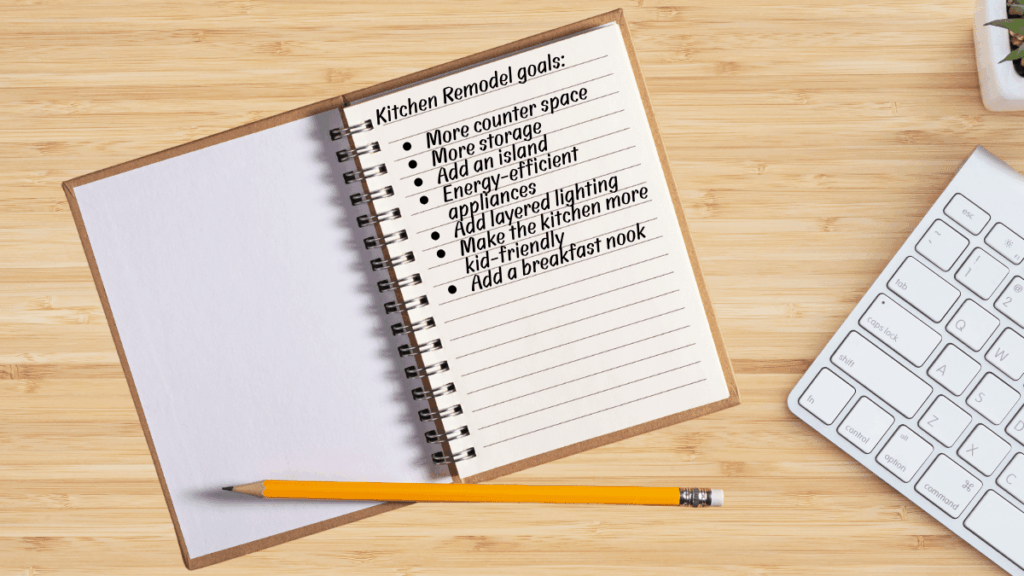 Kitchen Remodel goals:
• More counter space
• More storage
• Add an island
• Energy-efficient
appliances
• Add layered lighting
• Make the kitchen more
kid-friendly
• Add a breakfast nook
esc
tab
caps lock
shift
fn
control
option
command
⌘
~
`
!
1
@
2
Q
W
A
S
D
Z
X
C